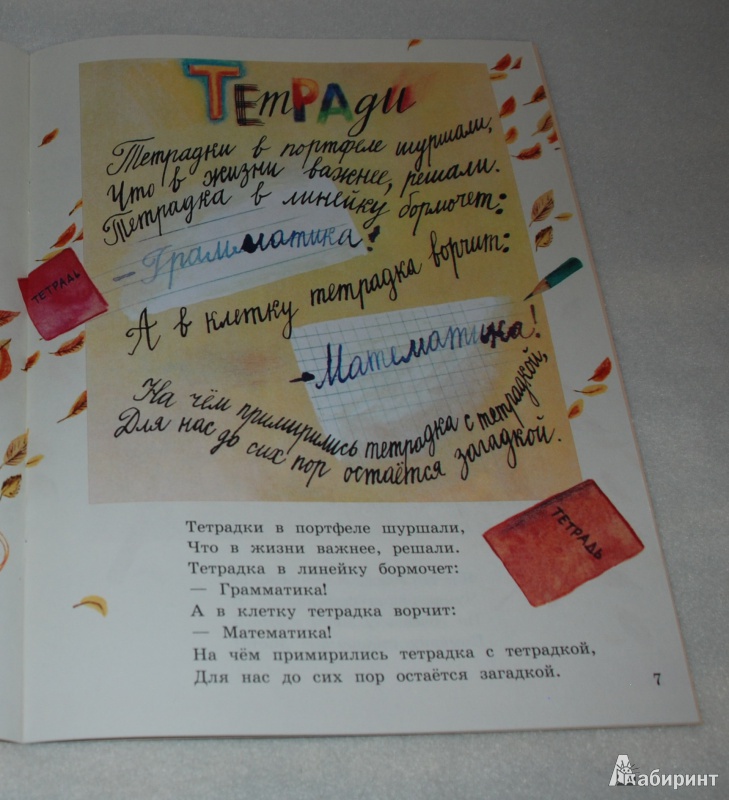 Тетради
Тетрадки в портфеле шуршали,
Что в жизни важнее, решали.
Тетрадка в линейку бормочет:
– Грамматика!
А в клетку тетрадка ворчит:
– Математика!
На чём примирились тетрадка с тетрадкой,
Для нас до сих пор остаётся загадкой.
ТЕТРАДЬ
ТЕТРАДЬ
Тетрадки в портфеле шуршали,
Что в жизни важнее, решали.
Тетрадка в линейку бормочет:
— Грамматика!
А в клетку тетрадка ворчит:
— Математика!
На чём примирились тетрадка с тетрадкой,
Для нас до сих пор остаётся загадкой.
7
Лабиринт